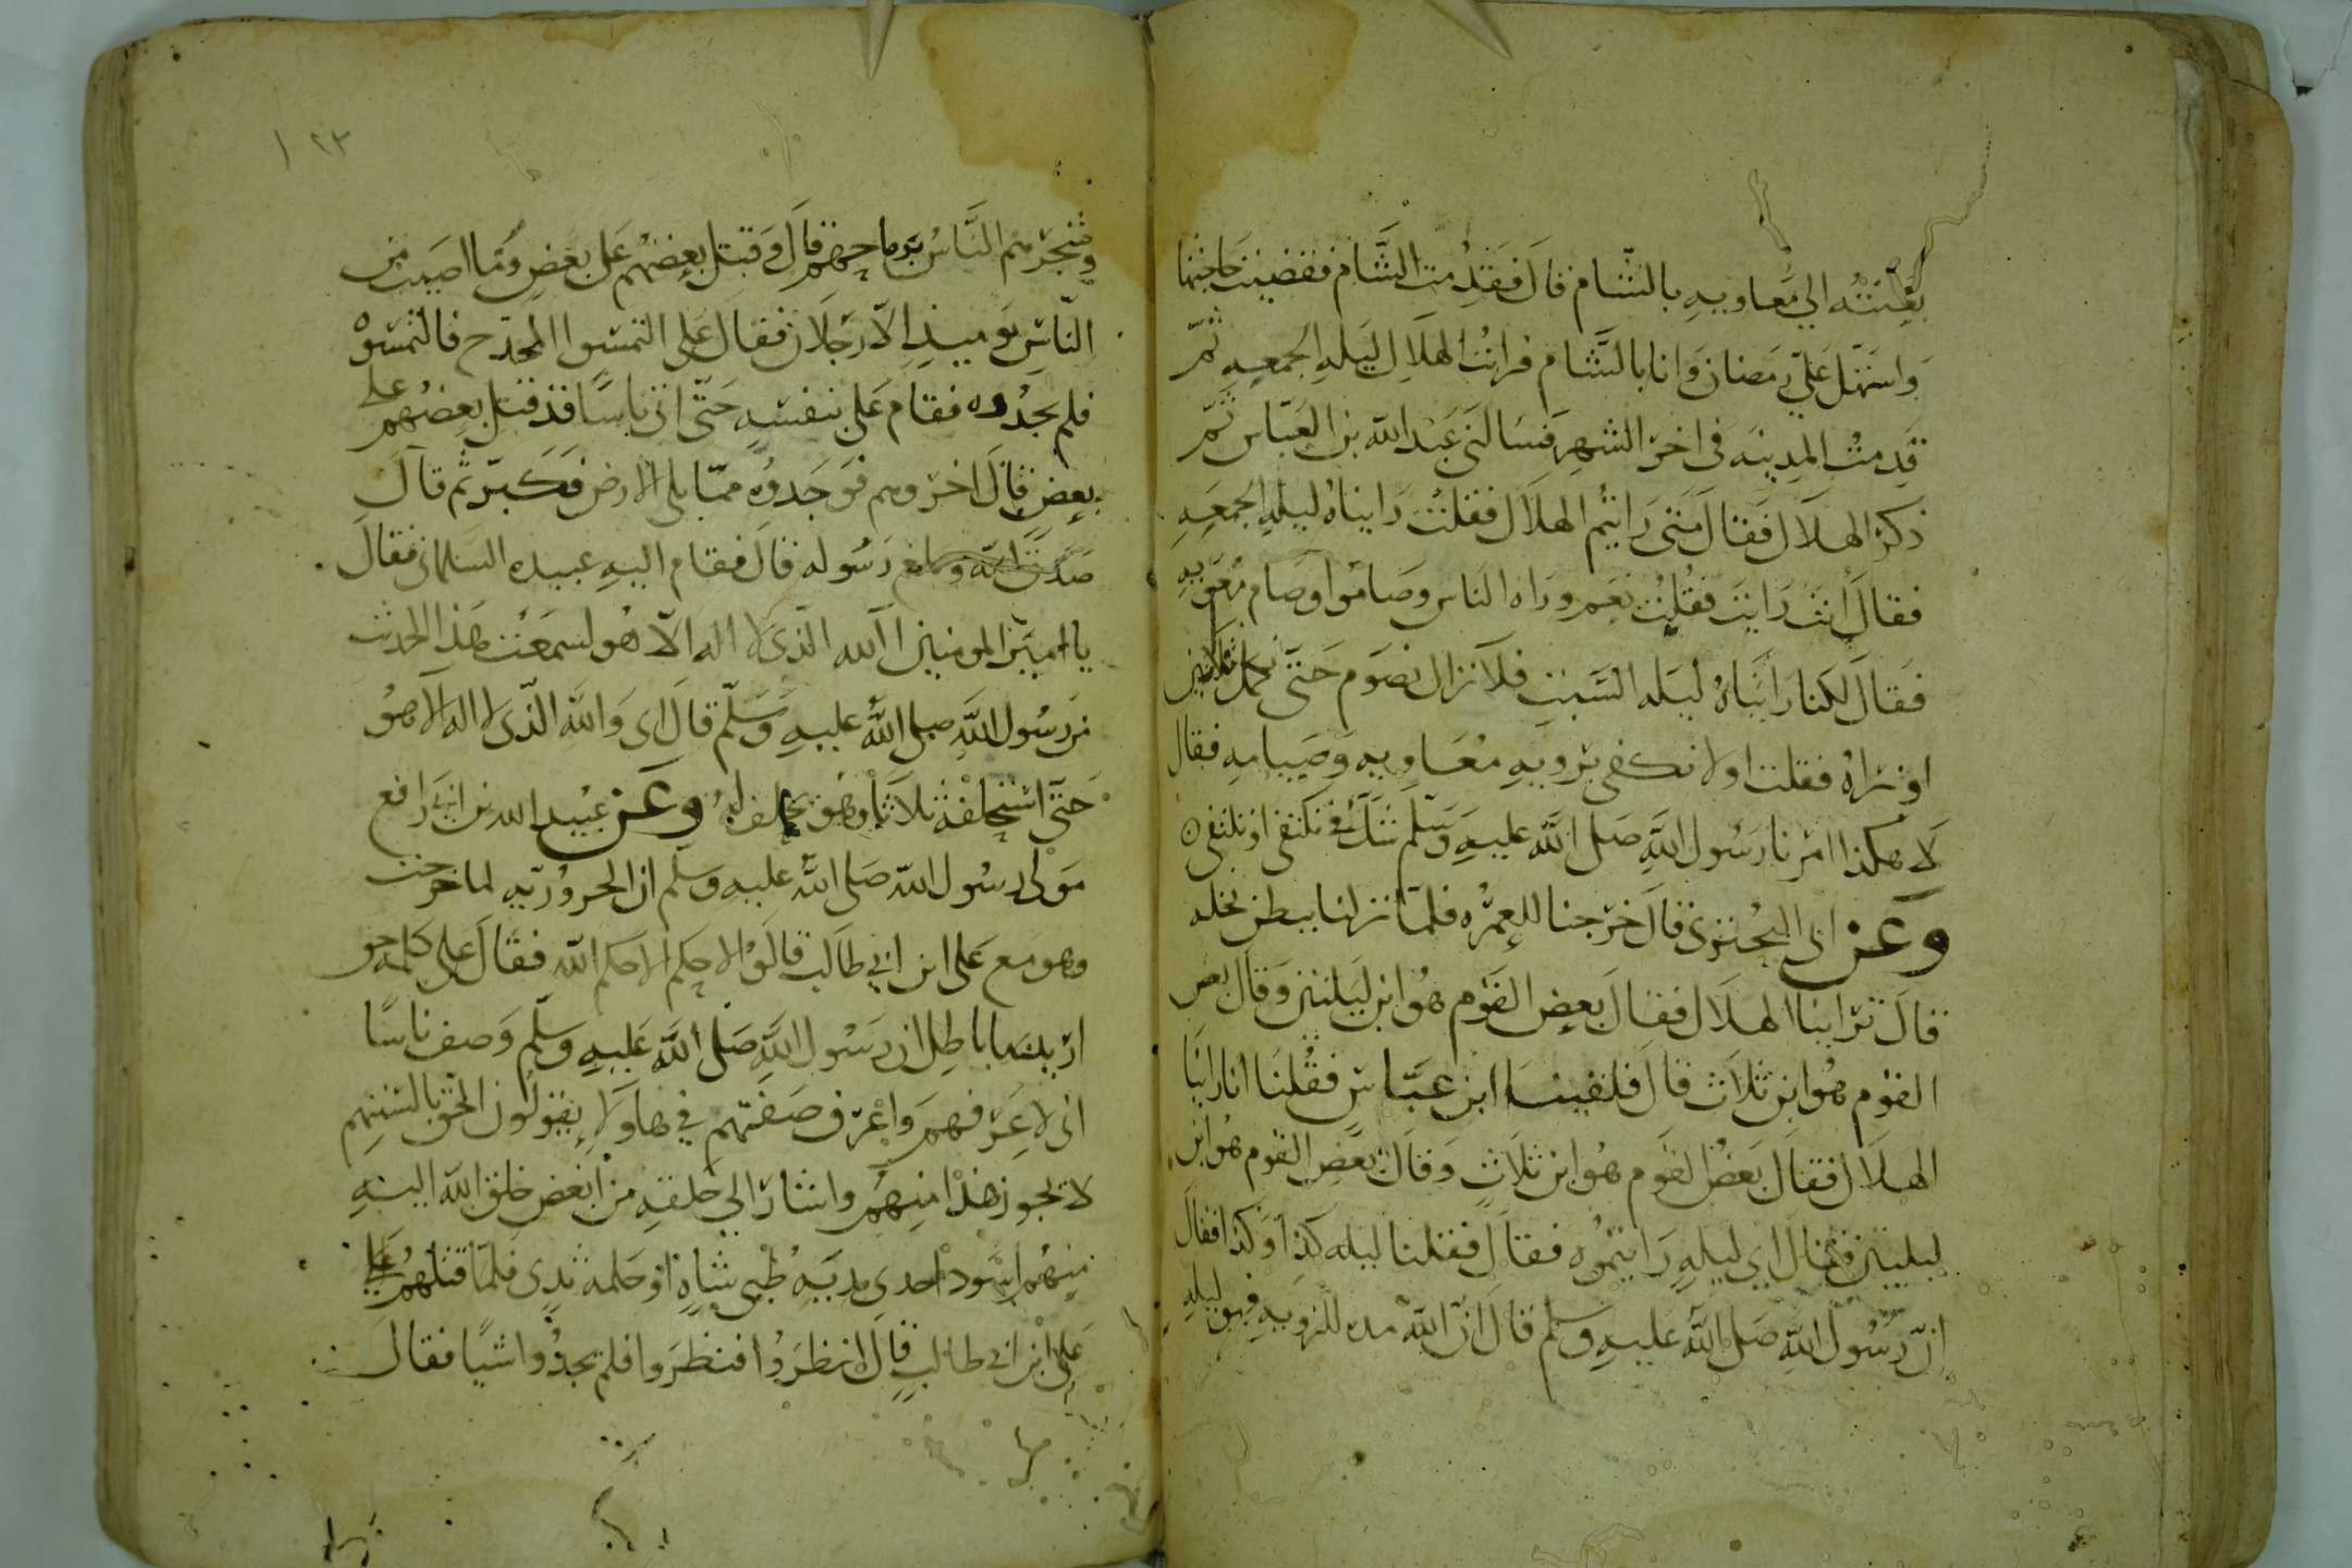 بعثته الي معاويه بالشام قال فقدمت الشام فقضيت حاجتها
واستهل علي رمضان وانا بالشام فرايت الهلال ليله الجمعه ثم
قدمت المدينه في اخر الشهر فسالني عبد الله بن العباس ثم
ذكر الهلال فقال متي رايتم الهلال فقلت رايناه ليله الجمعه
فقال انت رايت فقلت نعم وراه الناس وصاموا وصام معويه
فقال لكنا رايناه ليله السبت فلا نزال نصوم حتي نكمل ثلاثين
او نراه فقلت اولا تكفي برويه معاويه وصيامه فقال
لا هكذا امرنا رسول الله صلي الله عليه وسلم شك في نكتفي او تكتفي ٥
وعن ابي البختري قال خرجنا للعمره فلما نزلنا ببطن نخله
قال تراينا الهلال فقال بعض القوم هو ابن ليلتين وقال بعض
القوم هو ابن ثلاث قال فلقينا ابن عباس فقلنا انا راينا
الهلال فقال بعض القوم هو ابن ثلاث وقال بعض القوم هو ابن
ليلتين فقال اي ليله رايتموه فقال فقلنا ليله كذا وكذا فقال
ان رسول الله صلي الله عليه وسلم قال ان الله مده للرويه فهو ليله
١٢٣
وشجرهم الناس برماحهم قال وقتل بعضهم علي بعض وما اصيب من
الناس يوميذ الا رجلان فقال علي التمسوا المخدج فالتمسوه
فلم يجدوه فقام علي بنفسه حتي اتي ناسا قد قتل بعضهم علي
بعض قال اخروهم فوجدوه مما يلي الارض فكبر ثم قال
صدق الله وبلغ رسوله قال فقام اليه عبيده السلماني فقال
يا امير المومنين الله الذي لا اله الا هو لسمعت هذا الحديث
من رسول الله صلي الله عليه وسلم قال اي والله الذي لا اله الا هو
حتي استحلفه ثلاثا وهو يحلف له وعن عبيد الله بن ابي رافع
مولي رسول الله صلي الله عليه وسلم ان الحروريه لما خرجت
وهو مع علي ابن ابي طالب قالوا لا حكم الا حكم الله فقال علي كلمه حق
اريد بها باطل ان رسول الله صلي الله عليه وسلم وصف ناسا
اني لاعرفهم واعرف صفتهم في هاولا يقولون الحق بالسنتهم
لا يجوز هذا منهم واشار الي حلقه من ابغض خلق الله اليه
منهم اسود احدي يديه طبي شاه او حلمه ثدي فلما قتلهم علي
علي ابن ابي طالب قال انظروا فنظروا فلم يجدوا شيا فقال